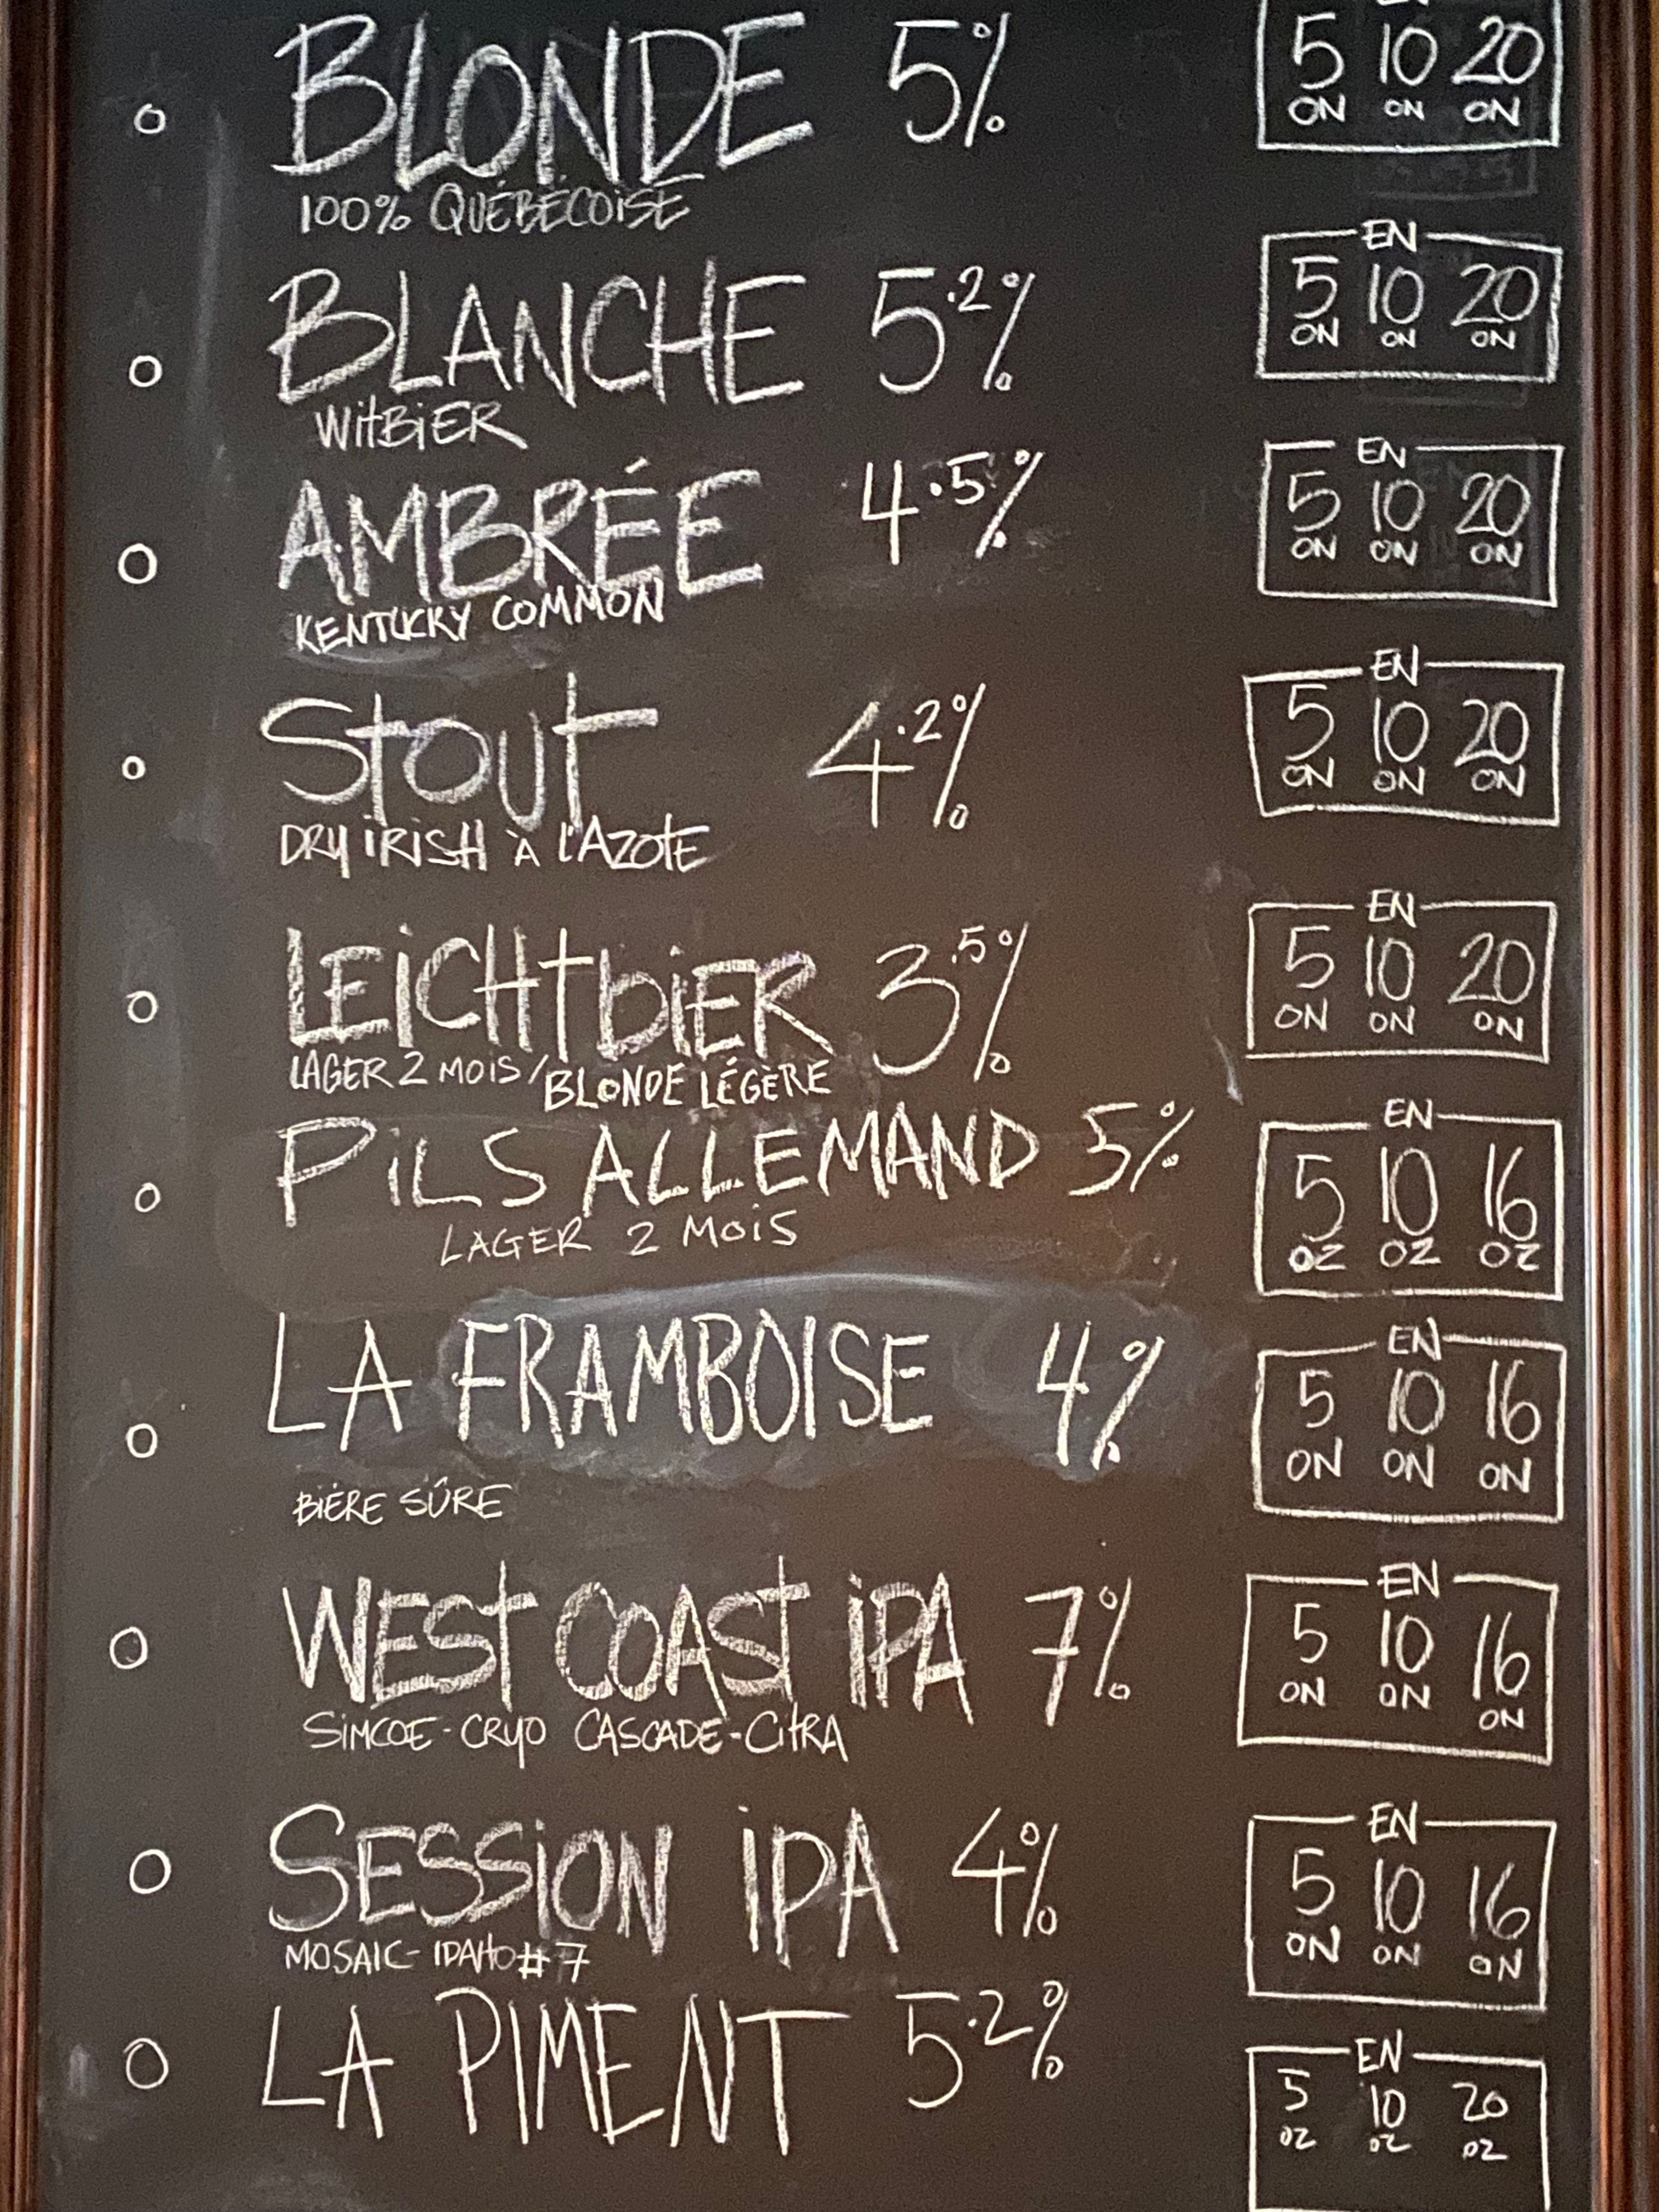 BLONDE 5%
5 10 20
ON ON ON
100% QUÉBÉCOISE
EN
BLANCHE 5.2%
5 10 20
ON ON ON
WITBIER
EN
AMBRÉE 4.5%
5 10 20
ON ON ON
KENTUCKY COMMON
EN
STOUT 4.2%
5 10 20
ON ON ON
DRY IRISH À L'AZOTE
EN
LEICHTBIER 3.5%
5 10 20
ON ON ON
LAGER 2 MOIS/BLONDE LÉGÈRE
EN
PILS ALLEMAND 5%
5 10 16
OZ OZ OZ
LAGER 2 MOIS
EN
LA FRAMBOISE 4%
5 10 16
ON ON ON
BIÈRE SÛRE
EN
WEST COAST IPA 7%
5 10 16
ON ON ON
SIMCOE-CRYO CASCADE-CITRA
EN
SESSION IPA 4%
5 10 16
ON ON ON
MOSAIC-IDAHO#7
EN
LA PIMENT 5.2%
5 10 20
OZ OZ OZ